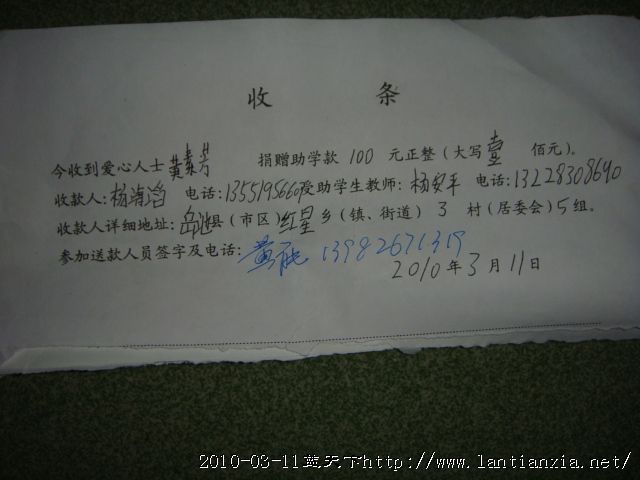 收 条
今收到爱心人士黄素芳 捐赠助学款 100 元正整(大写壹 佰元)。
收款人:杨海滔 电话:13551956609受助学生教师:杨安平 电话:13228308690
收款人详细地址:岳池县(市区)红星乡(镇、街道) 3 村(居委会)5组。
参加送款人员签字及电话:黄 13982671319
2010年3月11日
2010-03-11蓝天下http://www.lantianxia.net/